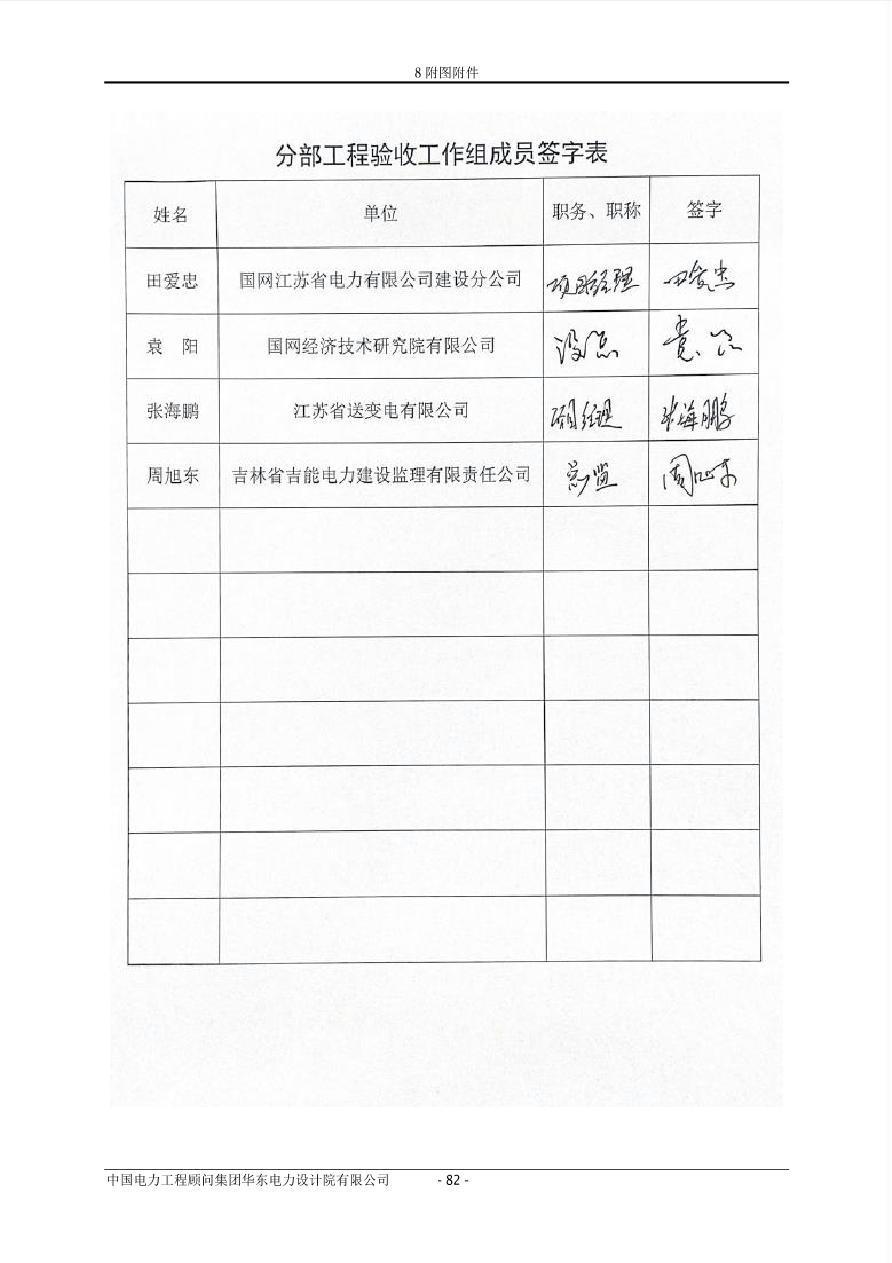 8 附图附件
分部工程验收工作组成员签字表
姓名 单位 职务、职称 签字
田爱忠 国网江苏省电力有限公司建设分公司 项目经理 田爱忠
袁 阳 国网经济技术研究院有限公司 设总 袁阳
张海鹏 江苏省送变电有限公司 项目经理 张海鹏
周旭东 吉林省吉能电力建设监理有限责任公司 总监 周旭东
中国电力工程顾问集团华东电力设计院有限公司 - 82 -